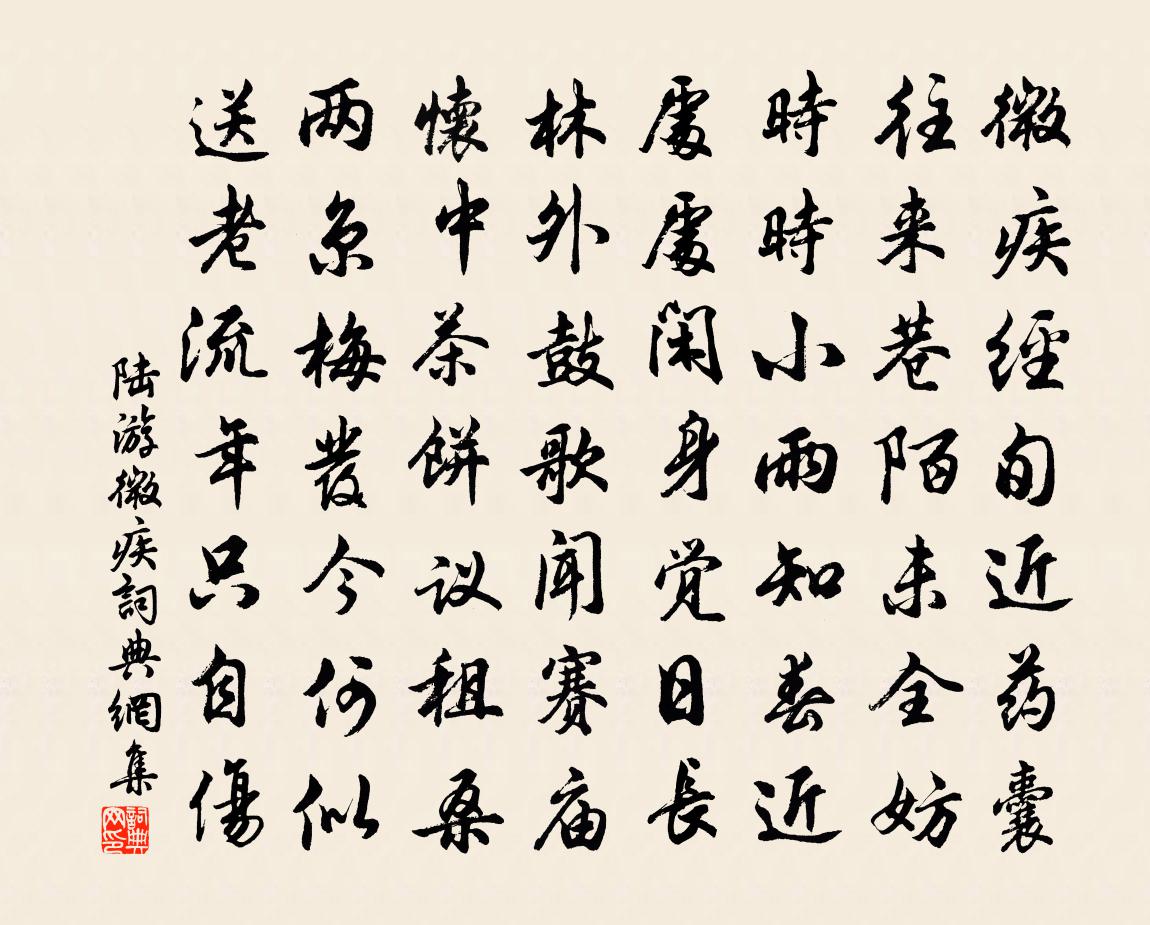 微疾經旬近药囊
往来巷陌未全妨
時時小雨知春近
處處閑身觉日長
林外鼓歌闻赛庙
懷中茶餅议租桑
两京梅發今何似
送老流年只自傷
陆游微疾詞典網集
詞典網印